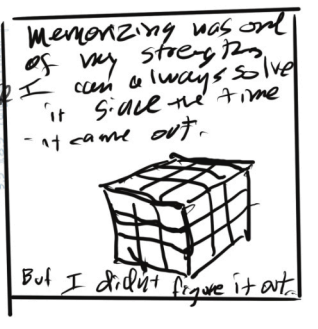 Memorizing was one
of my strengths
I can always solve
it since the time
it came out.
But I didn't figure it out.